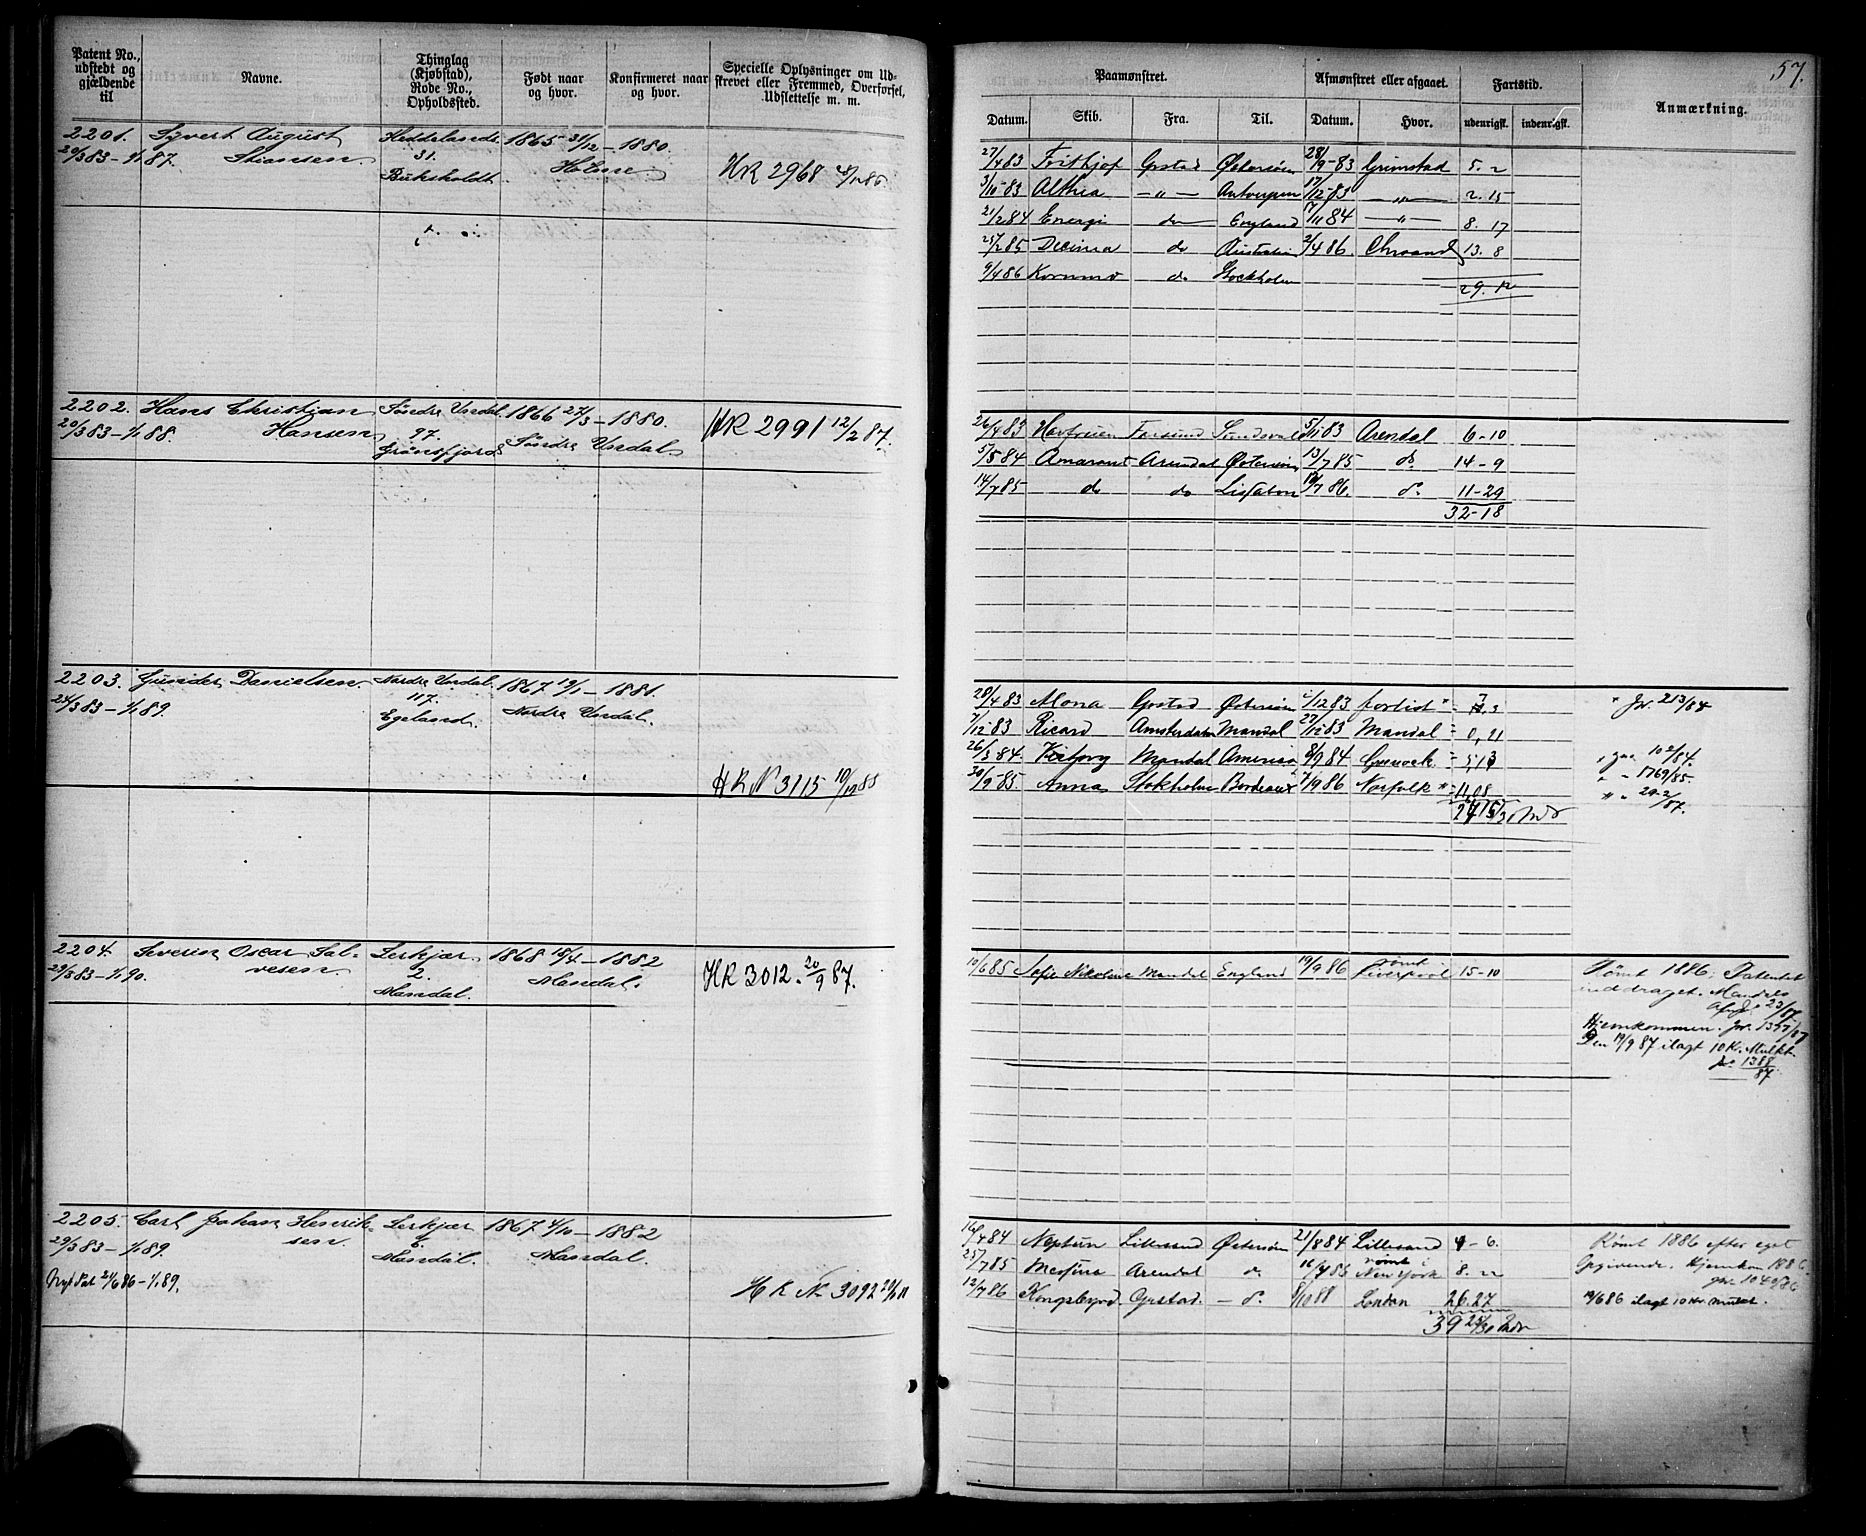 57.
Patent No., udstedt og gjældende til
Navne.
Thinglag (Kjøbstad), Rode No., Opholdssted.
Født naar og hvor.
Konfirmeret naar og hvor.
Specielle Oplysninger om Udskrevet eller Fremmed, Overførsel, Udslettelse m. m.
Paamønstret.
Afmønstret eller afgaaet.
Fartstid.
Anmærkning.
Datum. Skib. Fra. Til. Datum. Hvor. udenrigsk. indenrigsk.
2201. Syvert August Heddelands 1865 31/12 – 1880.
20/3 83 – 1/1 87. Stiansen 31. Holme HR 2968
Buhsholdt
27/4 83 Frithjof Grstad Østersøen 28/9 83 Grimstad 5. 2
3/10 83 Althea – " – Antwerpen 17/12 83 – " – 2. 15
21/2 84 Energi do England 84 – " – 8. 17
25/2 85 Decima do Australien 2/4 86. Chrsand 13. 8
9/4 86 Kornmo do Stockholm
29. 12
2202. Hans Christian Søndre Undal 1866 27/3 – 1880.
20/3 83 – 1/1 88. Hansen 97. Søndre Undal HR 2991 12/2 87.
Grønsfjord
26/4 83 Havfruen Farsund Sundsvall 5/11 83 Arendal 6 - 10
5/5 84 Amarant Arendal Østersøen 13/7 85 do 14 - 9
14/7 85 do do Lissabon 86. do 11 - 29
32 - 18
2203. Gunder Danielsen Nordre Undal 1867 – 1881.
24/3 83 – 1/1 89. 117. Nordre Undal.
Egeland
HR N 3115 10/12 88
28/4 83 Mona Grstad Østersøen 83 forlist 7, 3 Jr. 213/84
7/12 83 Ricard Amsterdam Mandal 27/12 83 Mandal 0, 21
26/3 84. Mandal America 8/9 84 Greenock 5, 13 102/84.
30/9 85. Anna Stokholm Bordeaux 7/9 86 Norfolk 11, 08 1769/85.
2204. Severin Oscar Sal- Lerkjær 1868 18/4 – 1882
29/3 83 – 1/1 90. vesen 2. Mandal. HR 3012. 20/9 87.
Mandal.
10/6 85 Sofie Nikoline Mandal England 19/9 86 rømt Liverpool 15 - 10
Rømt 1886, Patentet
inddraget. Mandals
Hjemkommen.
Den 19/9 87 ilagt 10 Kr. Mulkt
1388/87
2205. Carl Johan Henrik- Lerkjær 1867 4/10 – 1882
29/3 83 – 1/1 89. sen. 6. Mandal.
Mandal.
Nyt Pat 21/6 86 – 1/1 89.
HR No 3092
16/4 84 Neptun Lillesand Østersøen 21/8 84 Lillesand 4 - 6.
25/7 85 Messina Arendal do 86 rømt New York 8. 2
12/7 86 Kongsbyrd Grstad. – do 88 London 26. 27
39 25/30 Mdr
Rømt 1886 efter eget
Opgivende. Hjemkom 1886.
19/6 86 ilagt 10 Kr. Mulct.